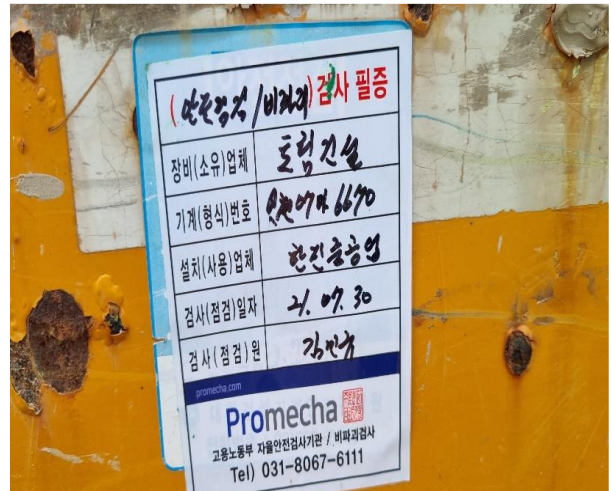 (안전점검/비파괴)검사 필증
장비(소유)업체 도림건설
기계(형식)번호 07가 6670
설치(사용)업체 한진중공업
검사(점검)일자 21. 07. 30
검사(점검)원
promecha.com
Promecha
고용노동부 자율안전검사기관 / 비파괴검사
Tel) 031-8067-6111